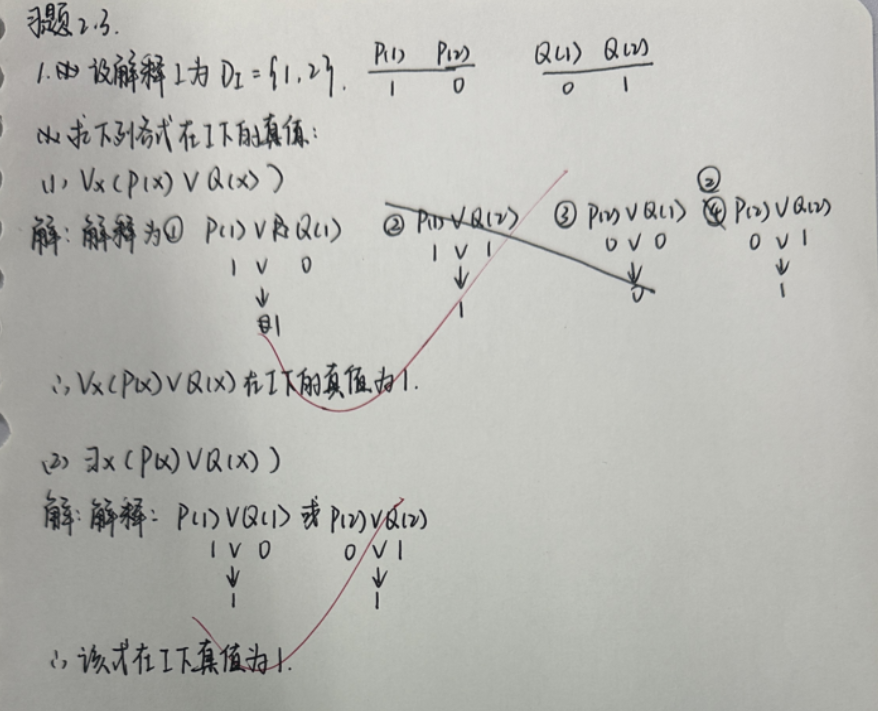 习题2.3.
1.(1) 设解释I为 D_I = {1, 2}. P(1) P(2) Q(1) Q(2)
1 0 0 1
(1) 求下列各式在I下的真值:
(1) ∀x(P(x) ∨ Q(x))
解: 解释为① P(1) ∨ Q(1) ② P(1) ∨ Q(2) ③ P(2) ∨ Q(1) ② P(2) ∨ Q(2)
1 ∨ 0 1 ∨ 1 0 ∨ 0 0 ∨ 1
↓ ↓ ↓ ↓
1 1 0 1
∴ ∀x(P(x) ∨ Q(x)) 在I下的真值为1.
(2) ∃x(P(x) ∨ Q(x))
解: 解释: P(1) ∨ Q(1) 或 P(2) ∨ Q(2)
1 ∨ 0 0 ∨ 1
↓ ↓
1 1
∴ 该式在I下真值为1.